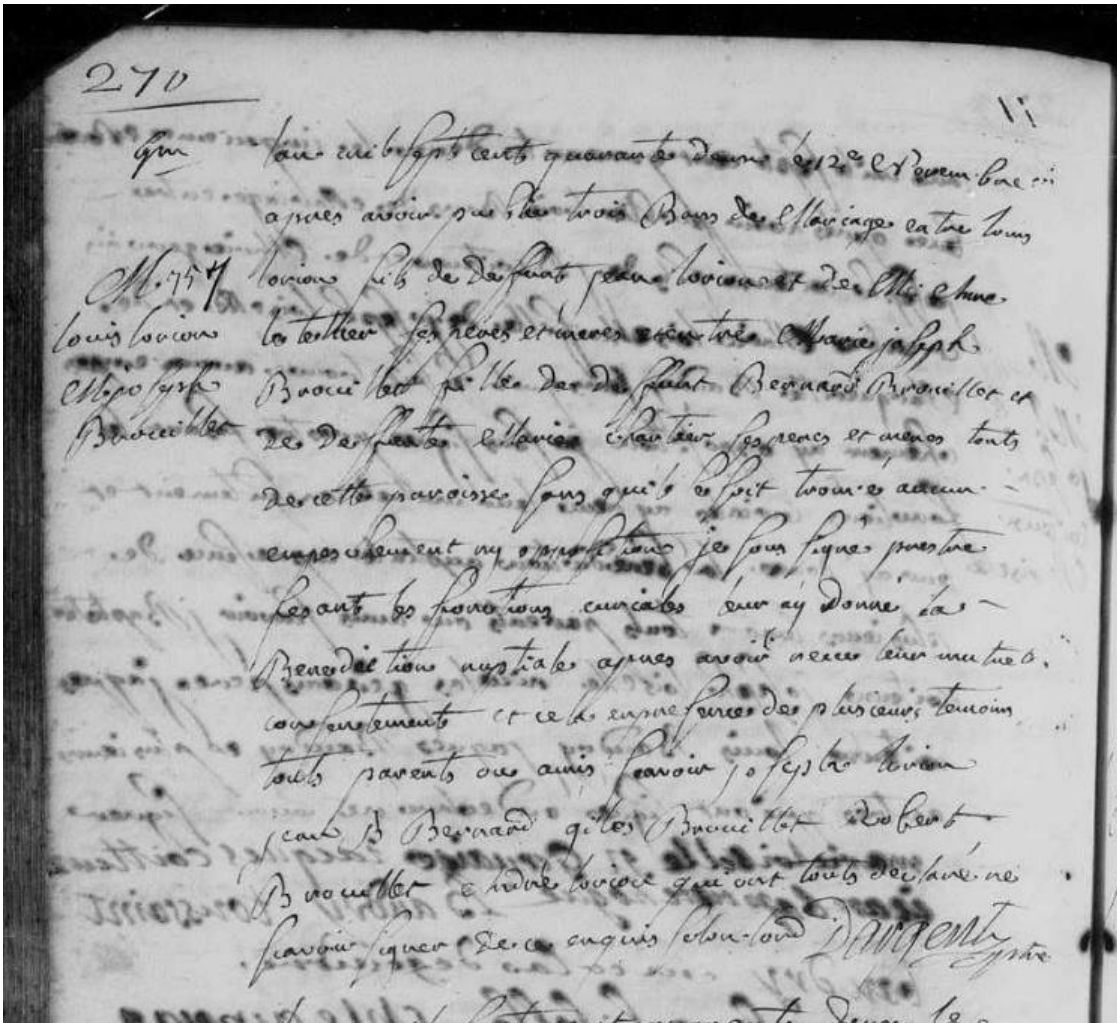 270
lan mil sept cents quarante deux le 12e Novembre
apres avoir publié trois Bans de Mariage entre louis
M. 75
lorion fils de deffunt jean lorion et de Mie Anne
louis lorion
letellier ses peres et meres et entre Marie joseph
M. joseph
Brouillet fille de deffunt Bernard Brouillet et
Brouillet
de deffunte Marie chartier ses peres et meres touts
de cette paroisse sans qu'il se soit trouvé aucun
empeschement ny opposition je sous signé prestre
fesant les fonctions curiales leur ay donné la
Benediction nuptiale apres avoir receu leur mutuel
consentement et cela en presence de plusieurs temoins
touts parents ou amis scavoir joseph lorion
jean B Bernard giles Brouillet Robert
Brouillet Andre lorion qui ont touts declaré ne
scavoir signer de ce enquis selon lord Dargent ptre